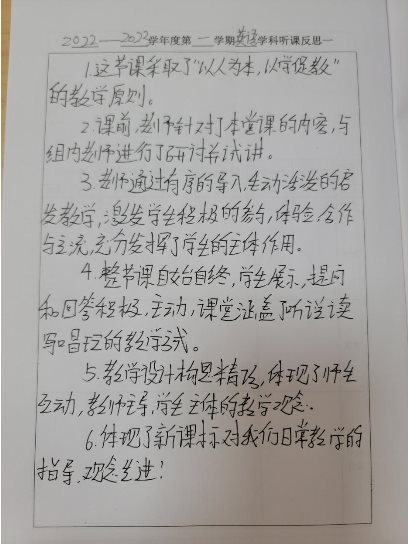 2022——2023学年度第一学期英语学科听课反思一
1.这节课采取了“以人为本,以学促教”
的教学原则。
2.课前,教师针对了本堂课的内容,与
组内教师进行了研讨并试讲。
3.教师通过有序的导入,生动活泼的启
发教学,激发学生积极的参与,体验,合作
与交流,充分发挥了学生的主体作用。
4.整节课自始自终,学生展示,提问
和回答积极,主动,课堂涵盖了听说读
写唱玩的教学形式。
5.教学设计构思精巧,体现了师生
互动,教师主导,学生主体的教学观念.
6.体现了新课标对我们日常教学的
指导,观念先进!